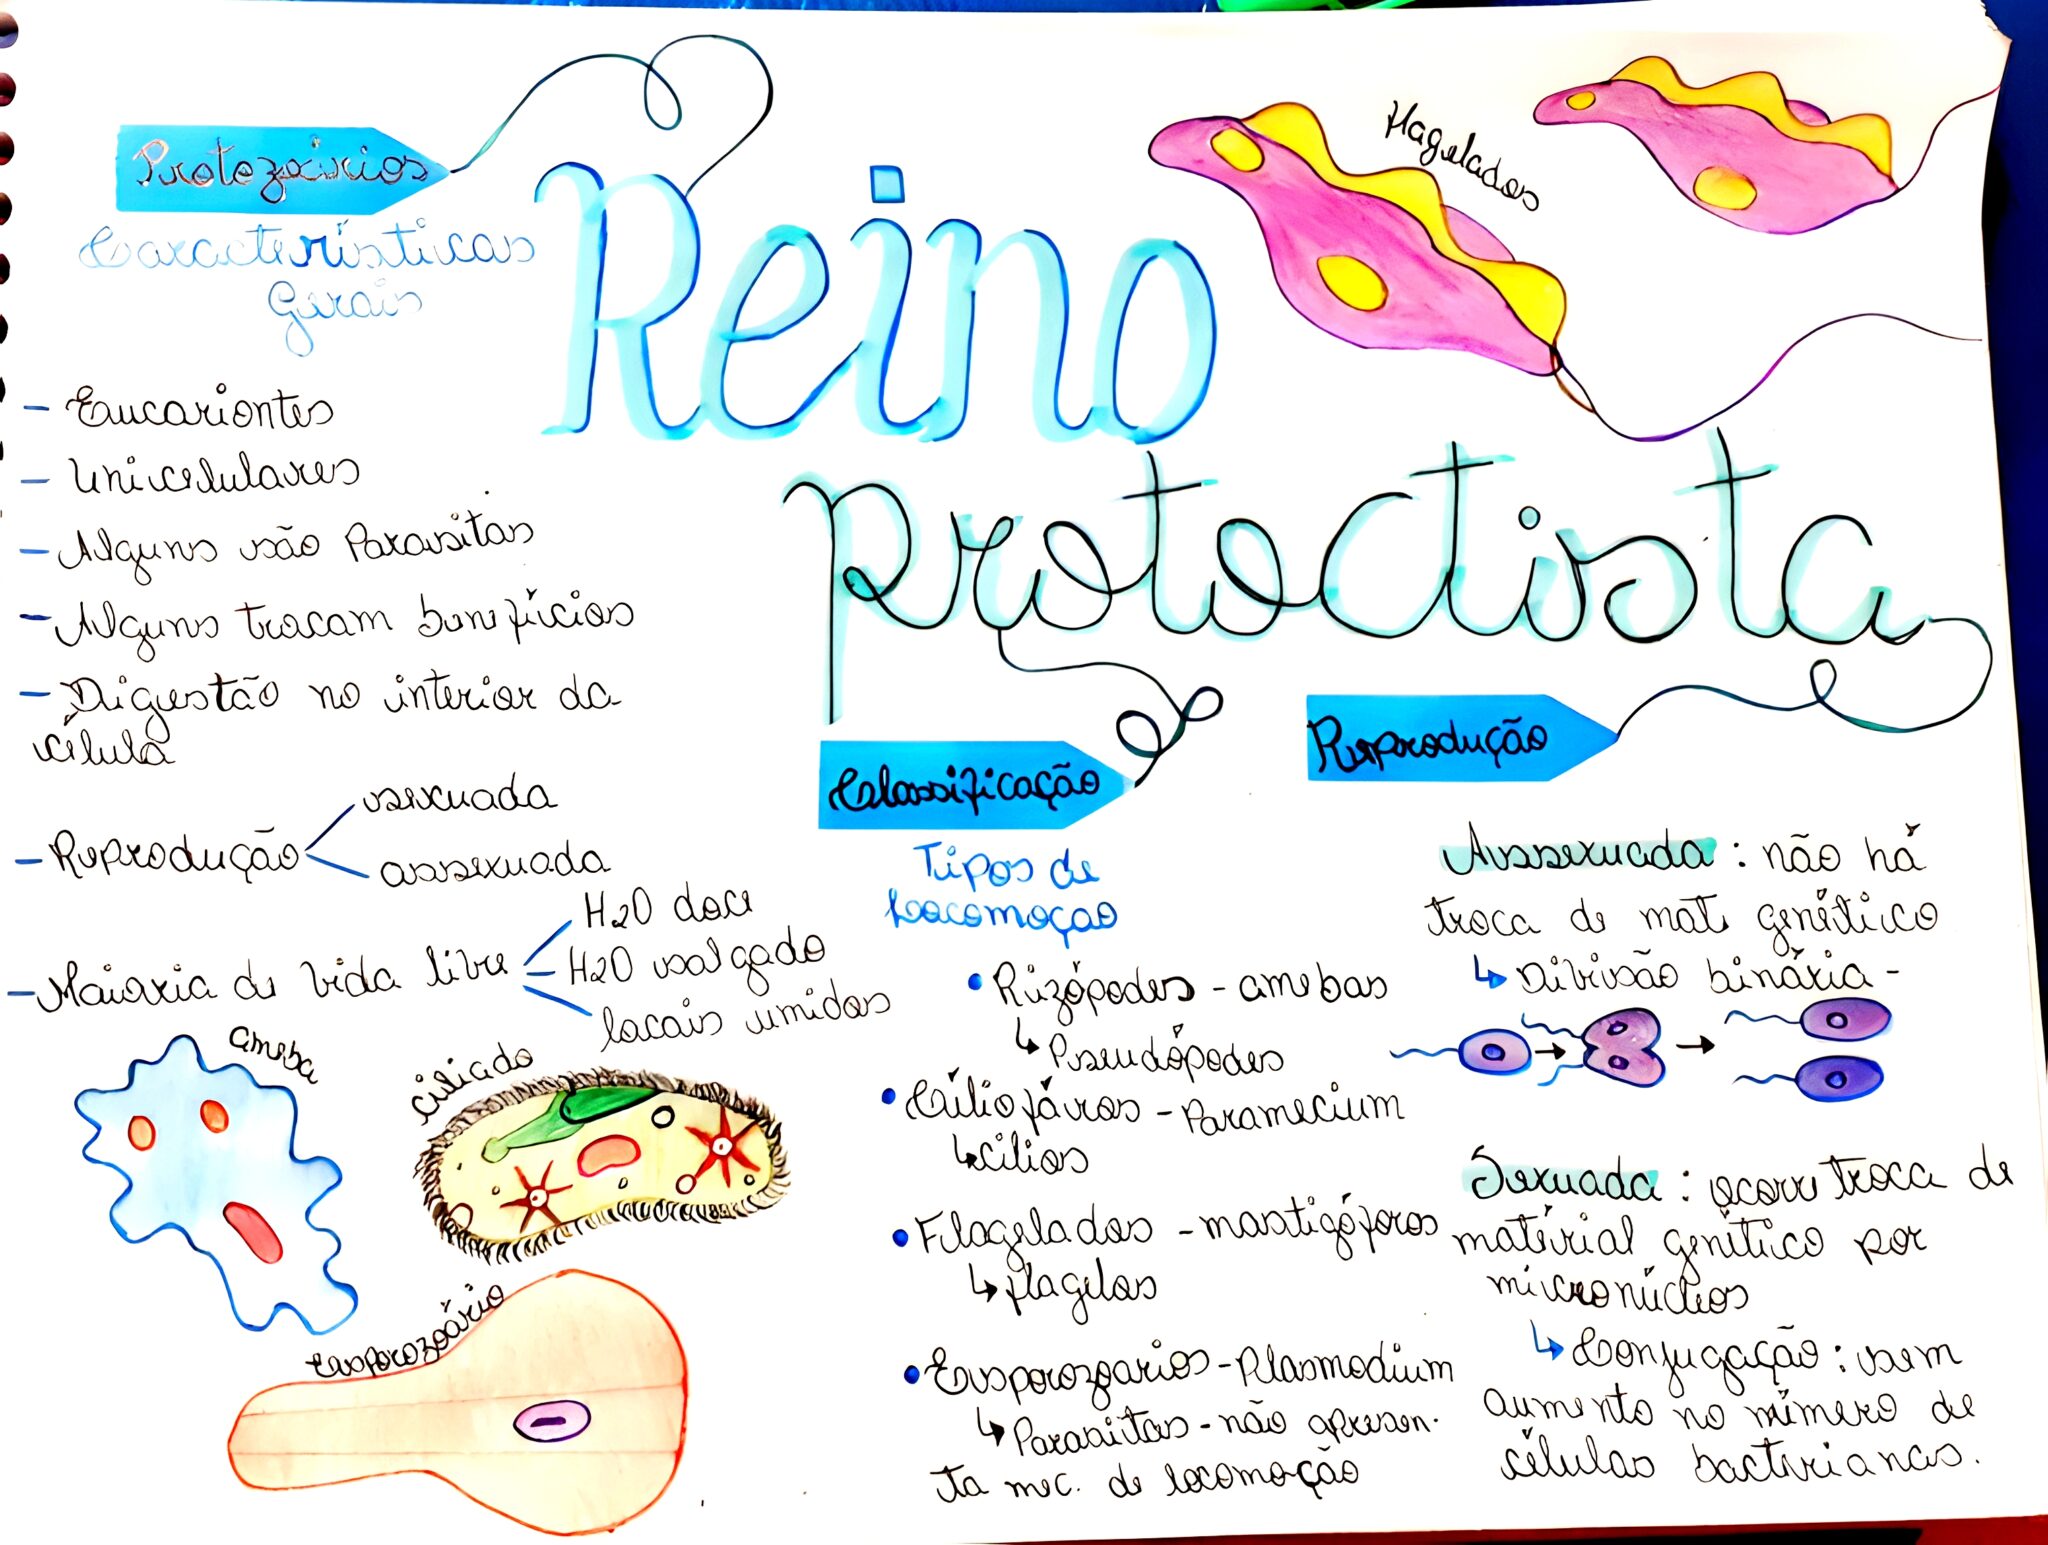 Reino
Protoctista
Protozoários
Características
Gerais
- Eucariontes
- Unicelulares
- Alguns são Parasitas
- Alguns trocam benefícios
- Digestão no interior da
célula
- Reprodução
sexuada
assexuada
- Maioria de vida livre
H2O doce
H2O salgado
locais úmidos
ameba
ciliado
Esporozoário
Flagelados
Classificação
Tipos de
Locomoção
• Rizópodes - amebas
↳ Pseudópodes
• Cíliofáros - Paramecium
↳ cílios
• Flagelados - mastigóforos
↳ flagelos
• Esporozoarios - Plasmodium
↳ Parasitas - não apresen-
ta mec. de locomoção
Reprodução
Assexuada : não há
troca de mat. genético
↳ Divisão binária -
Sexuada : ocorre troca de
material genético por
micronúcleos
↳ Conjugação : sem
aumento no número de
células bacterianas.